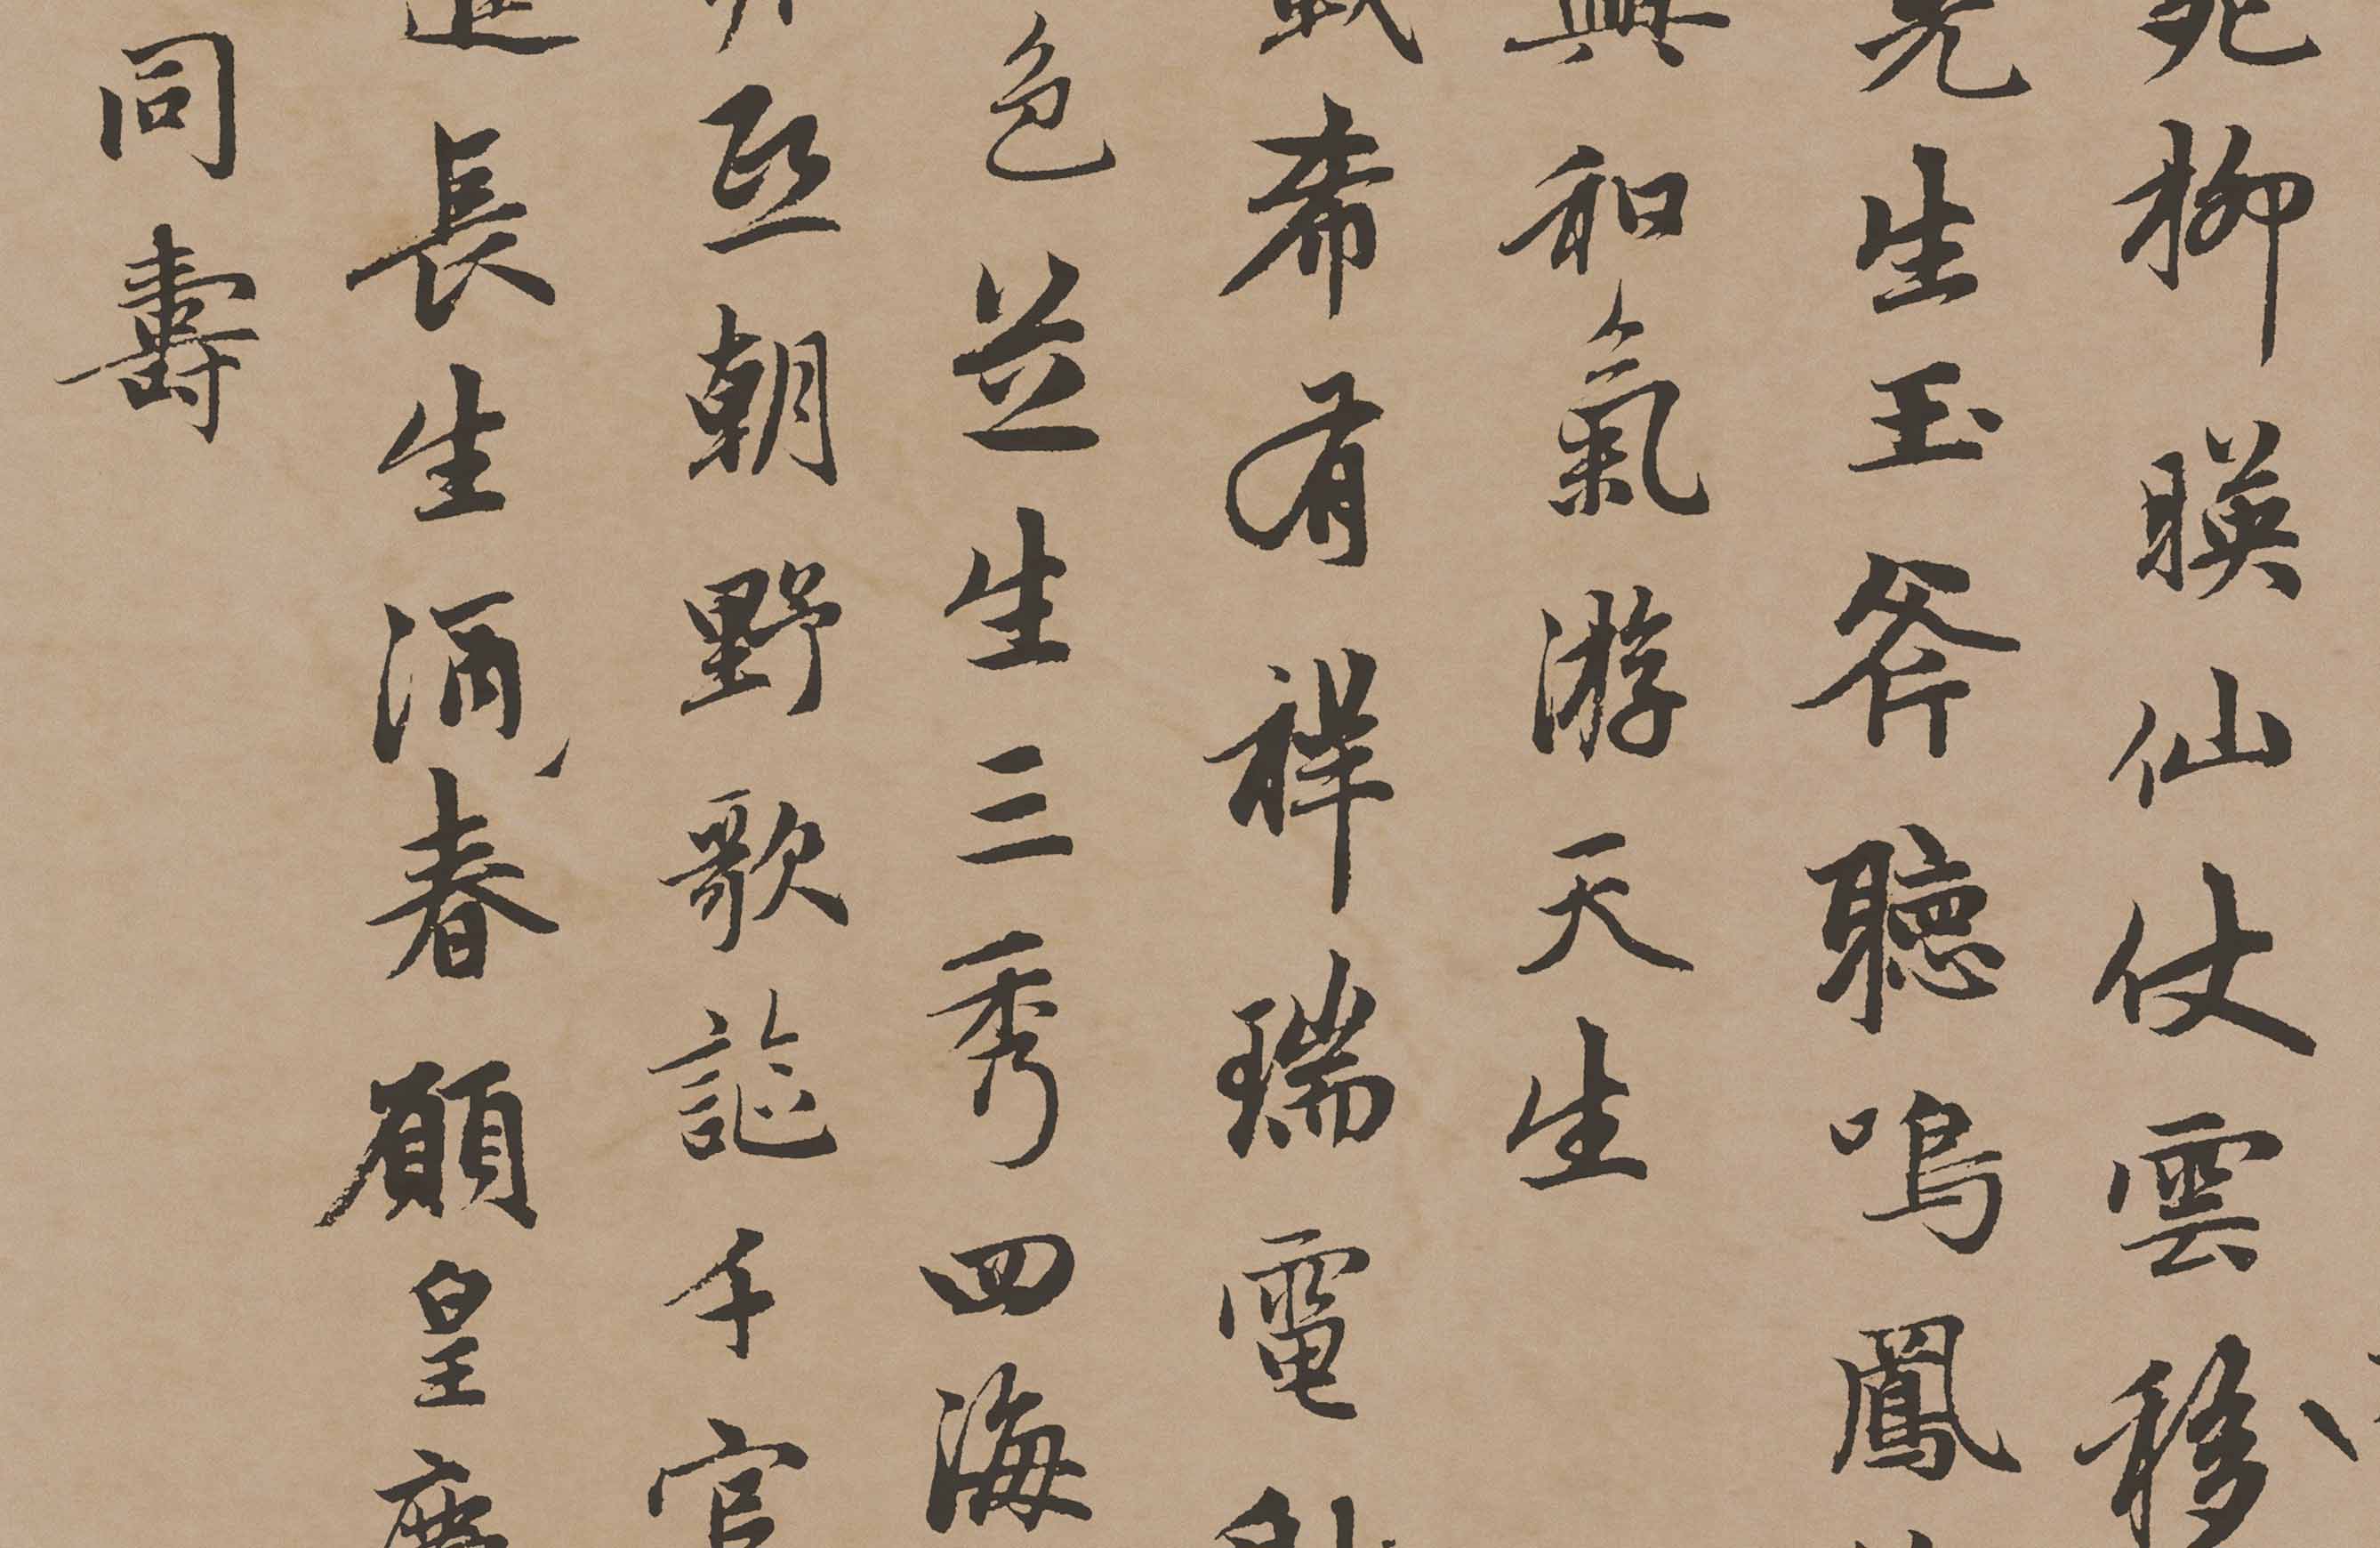 柳暎仙仗雲移
先生玉斧聽鳴鳳
興和氣游天生
載希有祥瑞電
色並生三秀四海
亞朝野歌謳千官
進長生酒春願皇慶
同壽